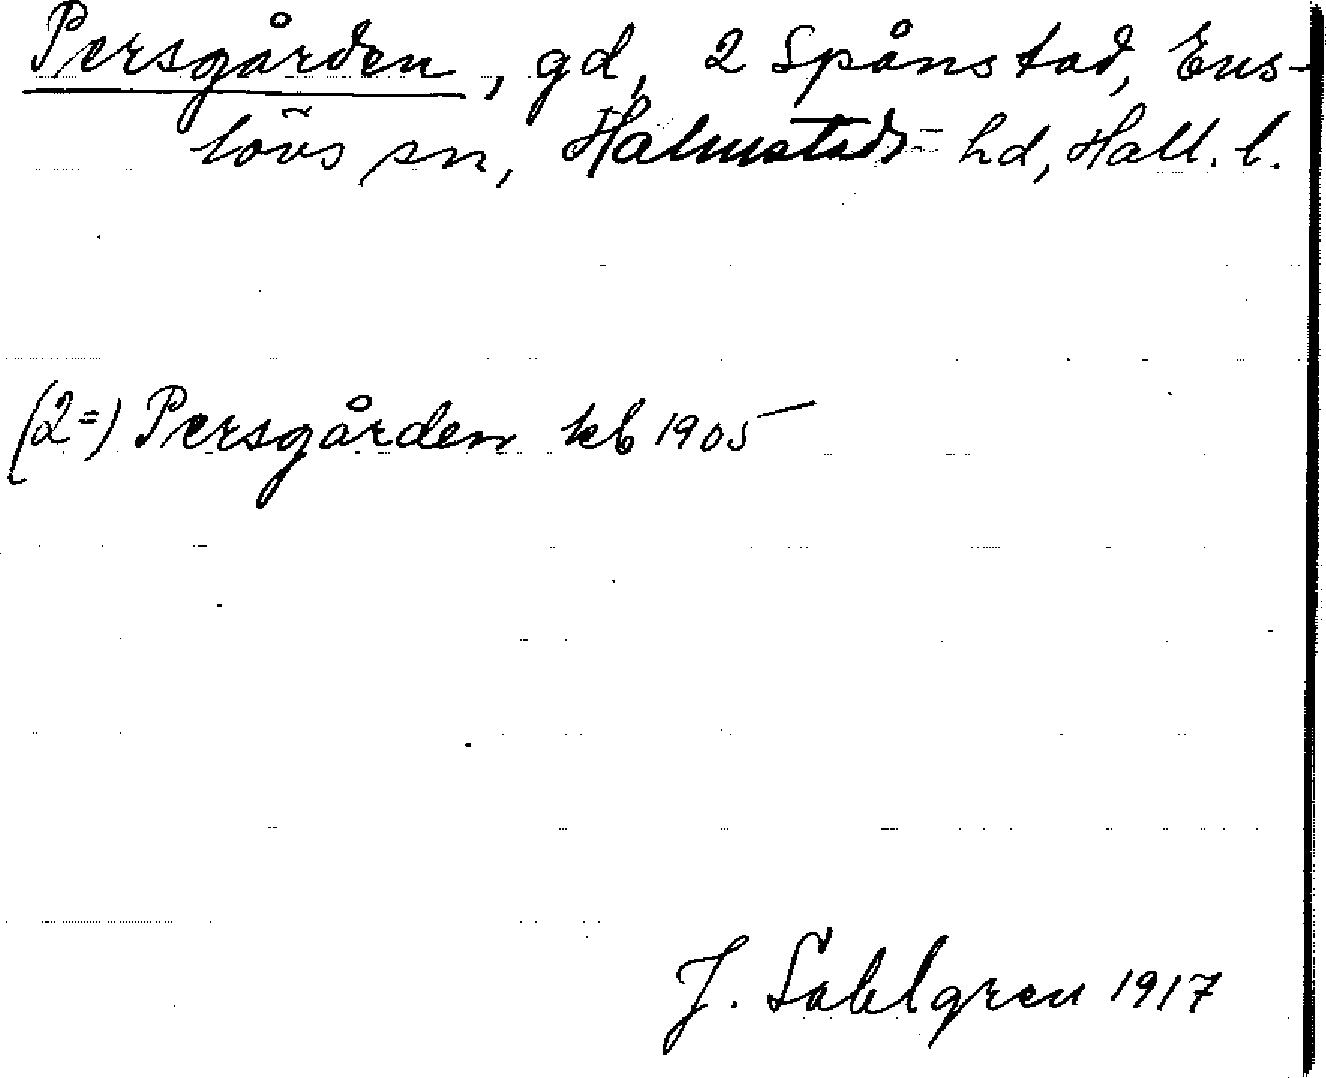 Persgården, gd, 2 Spånstad, Ens-
lövs sn, Halmstads hd, Hall. l.
(2=) Persgården kb 1905
J. Sahlgren 1917